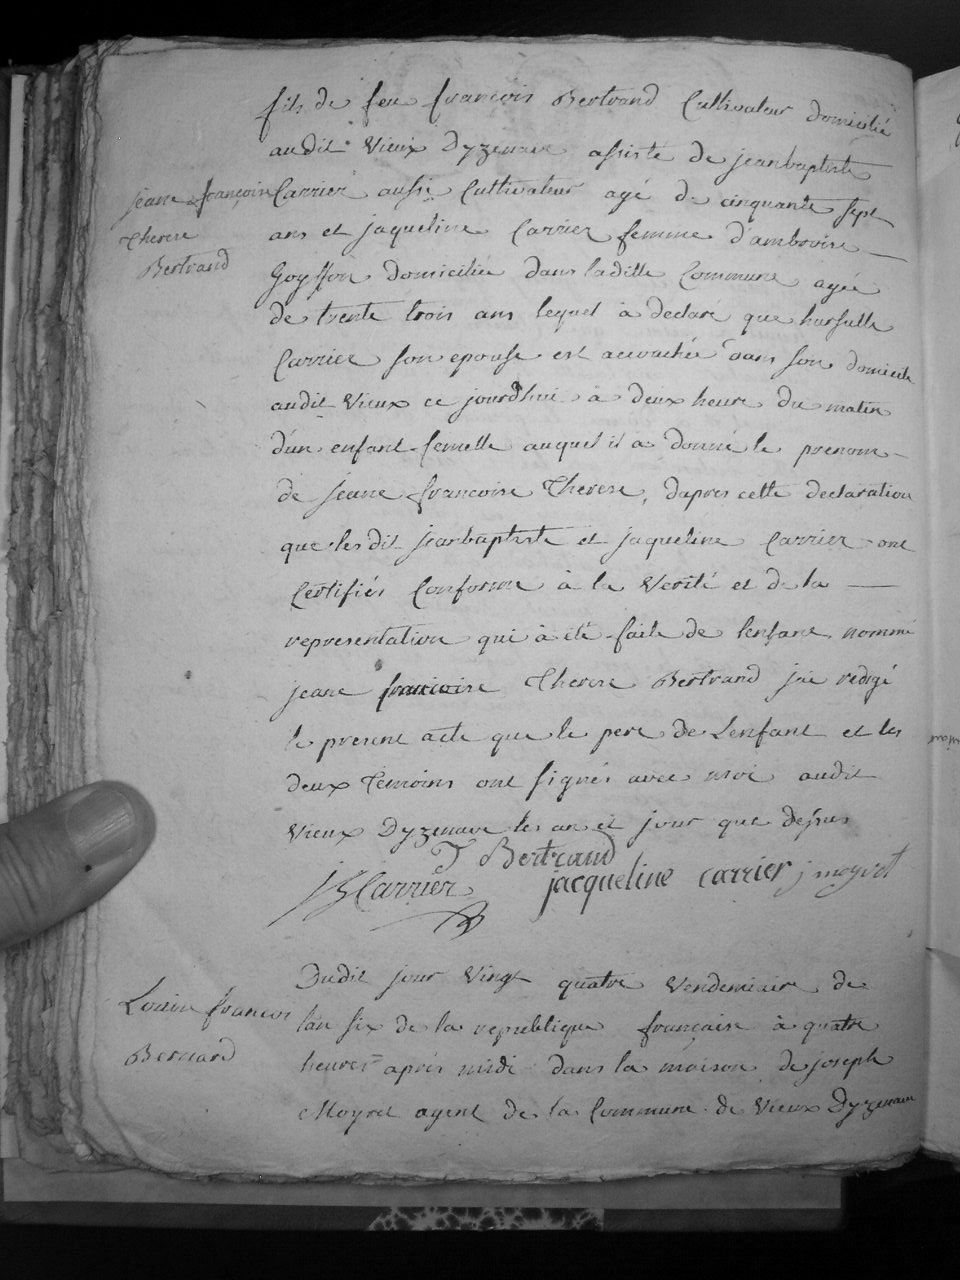 fils de feu francois Bertrand Cultivateur domicilié
audit Vieux Dyzenave assisté de jeanbaptiste
jeane françoise
Therese
Bertrand
Carrier aussi Cultivateur agé de cinquante sept
ans et jaqueline Carrier femme d'ambroise
Goyffon domiciliée dans ladille Commune agée
de trente trois ans lequel à declare que
Carrier son epouse est accouchée dans son domicile
audit Vieux ce jourdhui à deux heure du matin
d'un enfant femelle auquel il à donné le prenom
de jeane francoise Therese, dapres cette declaration
que les dit jeanbaptiste et jaqueline Carrier ont
Certifiés Conforme à la Verité et de la
representation qui à été faite de lenfant nommé
jeane francoise Therese Bertrand jai redigé
le present acte que le pere de Lenfant et les
deux Temoins ont signés avec moi audit
Vieux Dyzenave les an et jour que dessus
J Bertrand
JB Carrier jacqueline carrier j moyret
Louise francois
Bernard
Dudit jour Vingt quatre Vendemiaire de
lan six de la republique française à quatre
heures après midi dans la maison de joseph
Moyret agent de la Commune de Vieux Dyzenave